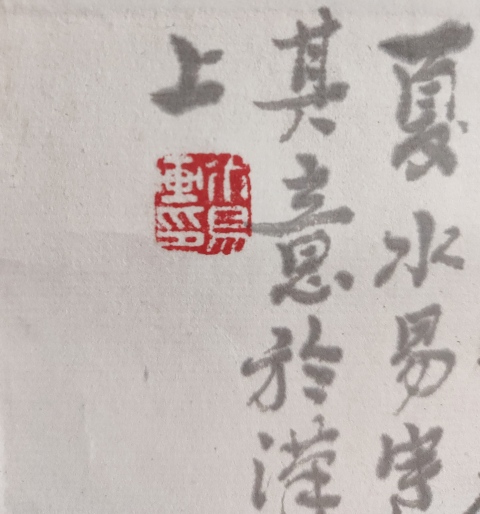 夏水易
其意於漢
上